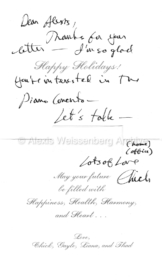 Dear Alexis,
Thanks for your
letter — I'm so glad
Happy Holidays!
you're interested in the
Piano Concerto —
Let's talk —
© Alexis Weissenberg Archive
(home)
(office)
Lots of Love
Chick
May your future
be filled with
Happiness, Health, Harmony,
and Heart . . .
Love,
Chick, Gayle, Liana, and Thad